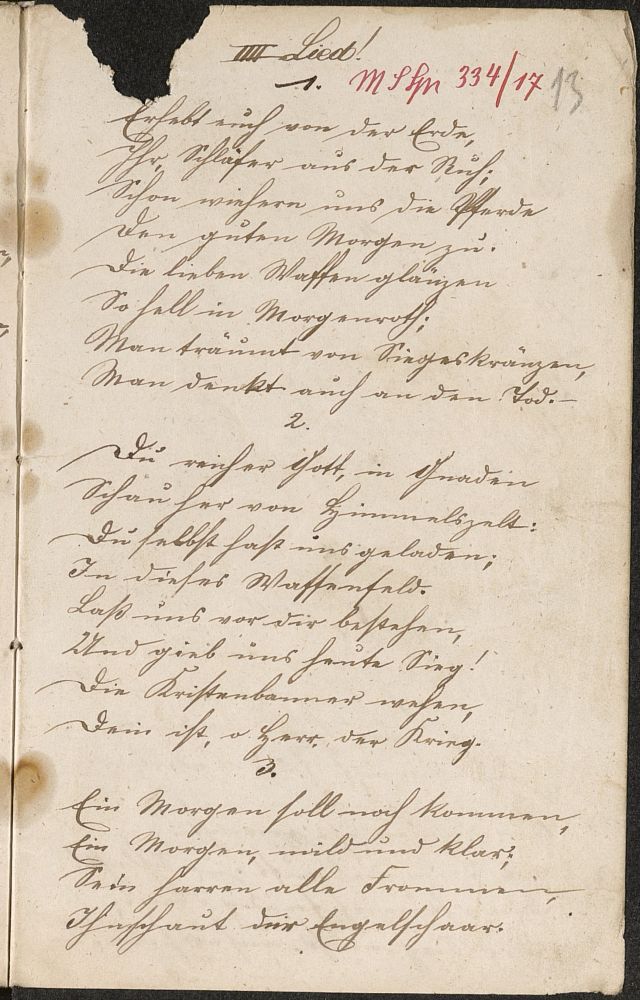 IIII Lied!
1. MSHn 334/17 13
Erhebt euch von der Erde,
Ihr, Schläfer aus der Ruh;
Schon wiehern uns die Pferde
Den guten Morgen zu.
Die lieben Waffen glänzen
So hell in Morgenroth;
Man träumt von Siegeskränzen,
Man denkt auch an den Tod.-
2.
Du reicher Gott, in Gnaden
Schau her von Himmelszelt:
Du selbst hast uns geladen;
In dieses Waffenfeld.
Laß uns vor dir bestehen,
Und gieb uns heute Sieg!
Die Kristenbanner wehen,
Dein ist, o Herr, der Krieg.
3.
Ein Morgen soll noch kommen,
Ein Morgen, mild und klar;
Sein harren alle Frommen,
Ihn schaut der Engelschaar.